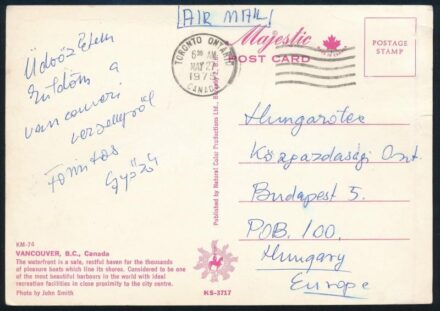 [AIR MAIL]
TORONTO ONTARIO
6:00 AM
MAY 27
CANADA
Majestic
POST CARD
POSTAGE
STAMP
Üdvözletem
küldöm a
vancouveri
versenyről
Győző
Hungarotex
Közgazdasági Oszt.
Budapest 5.
POB. 100.
Hungary
Europe
Published by Natural Color Productions Ltd.
KM-74
VANCOUVER, B.C., Canada
The waterfront is a safe, restful haven for the thousands
of pleasure boats which line its shores. Considered to be one
of the most beautiful harbours in the world with ideal
recreation facilities in close proximity to the city centre.
Photo by John Smith
KS-3717